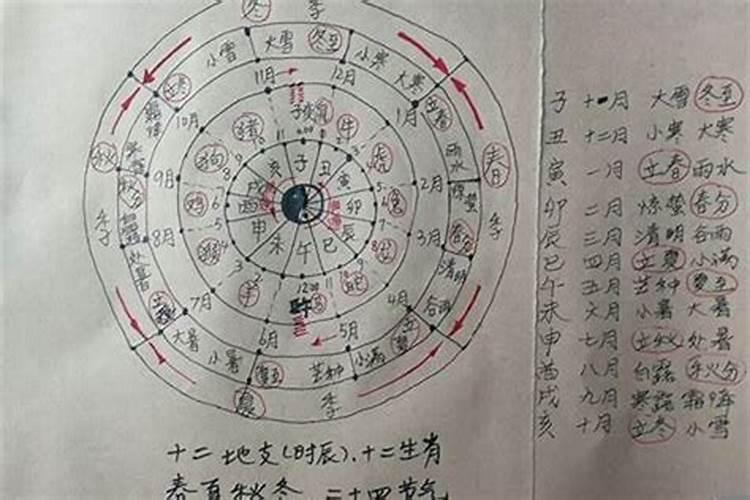 冬 季
小雪 大雪 冬至 小寒 大寒
立冬 11月 12月 立春
10月 1月
秋 季
春 季
9月 2月 雨水
秋分 惊蛰
8月 3月 春分
处暑 清明
7月 4月 谷雨
立秋 立夏
大暑 小暑 6月 5月 小满
夏至 芒种
夏 季
猪 子 鼠 牛
狗 亥 丑 虎
戌 寅
鸡 酉 卯 兔
申 辰
猴 未 午 巳 蛇
羊 马
子 十一月 大雪 冬至
丑 十二月 小寒 大寒
寅 一月 立春 雨水
卯 二月 惊蛰 春分
辰 三月 清明 谷雨
巳 四月 立夏 小满
午 五月 芒种 夏至
未 六月 小暑 大暑
申 七月 立秋 处暑
酉 八月 白露 秋分
戌 九月 寒露 霜降
亥 十月 立冬 小雪
十二地支(时辰)、十二生肖
春夏秋冬 二十四节气